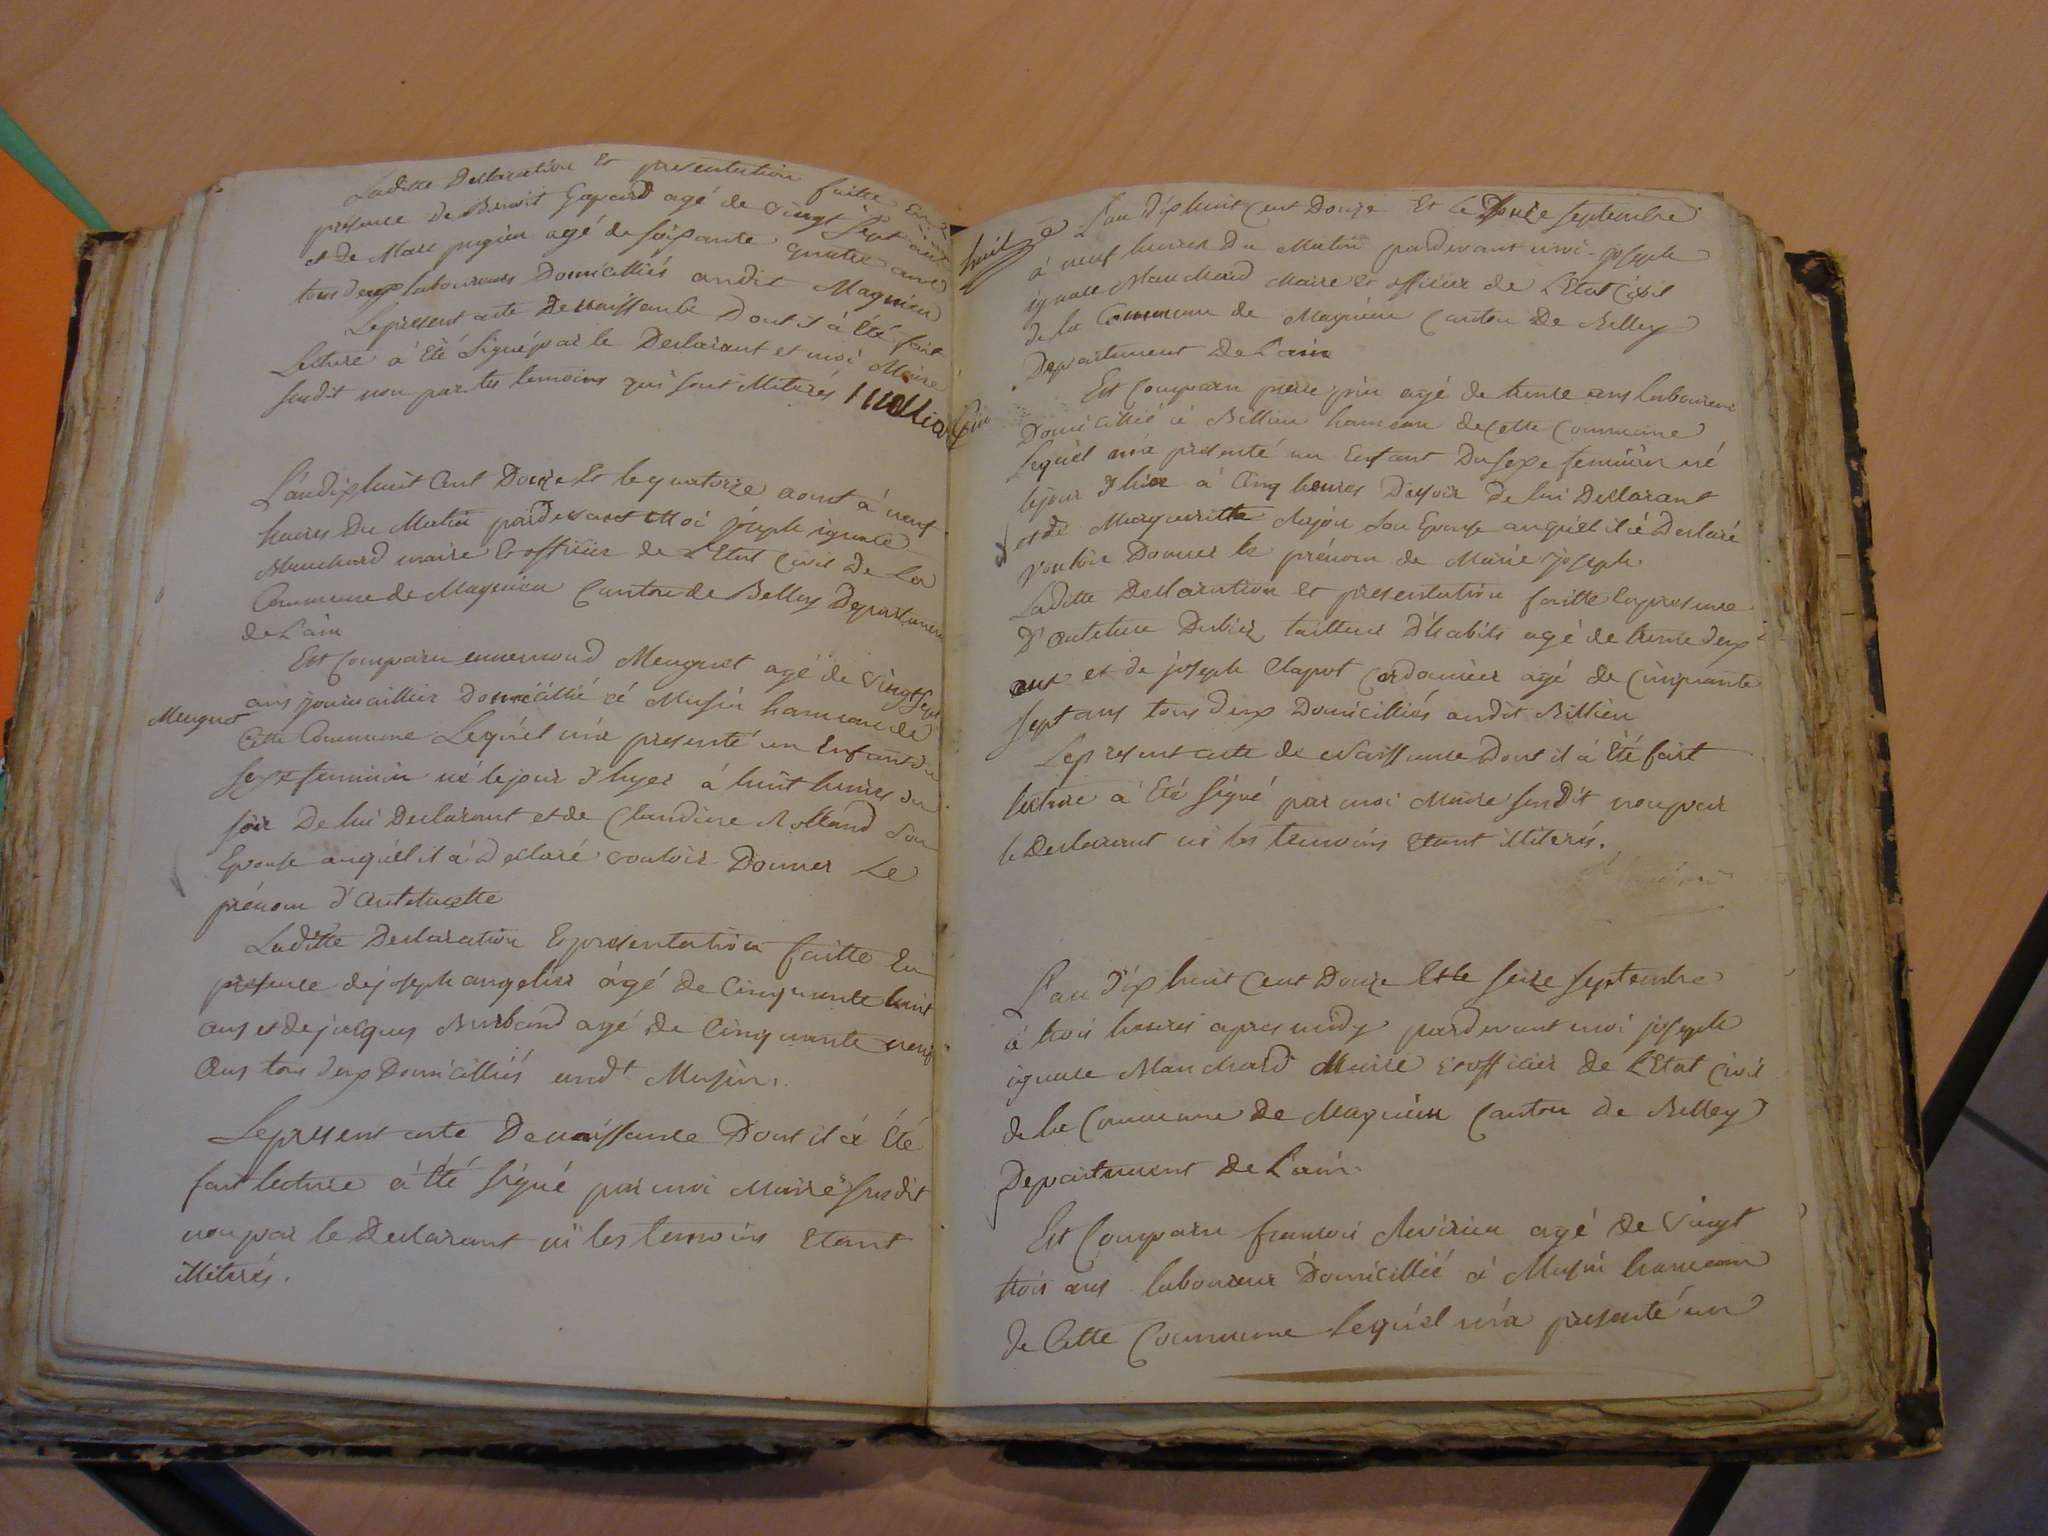 Laditte Declaration Et presentation faitte En
presence de Benoit Gojond agé de vingt sept ans
et de Marc pugieu agé de soixante quatre ans
tous deux laboureurs Domicilliés audit Magnieu
Le present acte De naissance Dont il à Eté fait
Lecture à Eté Signé par le Declarant et moi Maire
susdit non par les temoins qui sont illiterés
L'an dix huit Cent Douze Et le quatorze aout à neuf
heures Du Matin pardevant Moi joseph ignace
Manchard maire Et officier de L'Etat Civil De La
Commune de Magnieu Canton de Belley Departement
de L'ain
Est Comparu ennemond Meuguet agé de vingt sept
Meuguet
ans journaillier Domicillié à Musin hameau de
Cette Commune Lequel m'a presenté un Enfant du
sexe feminin né le jour d'hyer à huit heures du
soir De lui Declarant et de Claudine Rolland Son
Epouse auquel il à Declaré vouloir Donner Le
prénom d'antelmette
Laditte Declaration Et presentation faitte En
presence de joseph angelier âgé de Cinquante huit
ans et de jacques Burband agé de Cinquante neuf
Ans tous deux Domicilliés audt Musin.
Le present acte De naissance Dont il à Eté
fait lecture à Eté signé par moi Maire susdit
non par le Declarant ni les temoins Etant
illiterés.
L'an dix huit Cent Douze Et le Douze septembre
à neuf heures Du Matin pardevant moi joseph
ignace Manchard Maire Et officier de L'Etat Civil
de la Commune de Magnieu Canton De Belley
Departement De L'ain
Est Comparu pierre jpin agé de trente ans laboureur
Domicillié à Billieu hameau de Cette Commune
Lequel m'a présenté un Enfant Du sexe feminin né
le jour d'hier à Cinq heures Du soir de lui Declarant
et de Margueritte Son Epouse auquel il à Declaré
vouloir Donner le prénom de Marie joseph.
Laditte Declaration Et presentation faitte En presence
D'antelme Dubiez tailleur D'habits agé de trente deux
ans et de joseph Clapot Cordonnier agé de Cinquante
sept ans tous deux Domicilliés audit Billieu
Le present acte de Naissance Dont il à Eté fait
lecture à Eté signé par moi Maire susdit non par
le Declarant ni les temoins Etant illiterés.
L'an dix huit Cent Douze Et le seize septembre
à trois heures apres midy pardevant moi joseph
ignace Manchard Maire Et officier de L'Etat Civil
de la Commune de Magnieu Canton de Belley
Departement de L'ain.
Est Comparu francois Reverieu agé de vingt
trois ans laboureur Domicillié à Musin hameau
de Cette Commune Lequel m'a presenté un